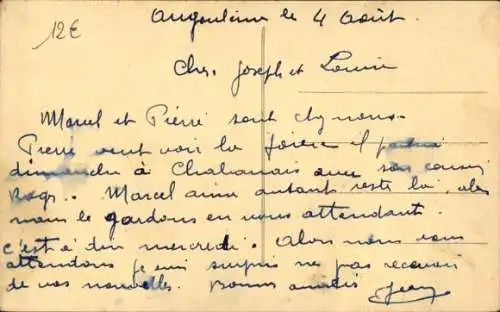 12€
Angoulême le 4 Août.
Cher Joseph et Louise
Marcel et Pierre sont chez nous.
Pierre veut voir la foire il
dimanche à Chabanais avec son cousin
Marcel aime autant resté là, alors
nous le gardons en vous attendant.
c'est à dire mercredi. Alors nous vous
attendons je suis surpris ne pas recevoir
de vos nouvelles. Bonnes amitiés Jean